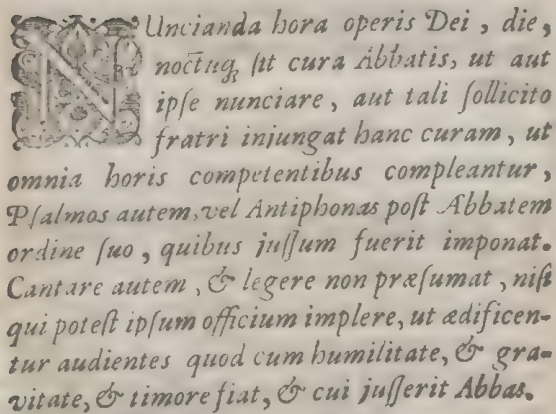 NUncianda hora operis Dei, die,
noctuq; sit cura Abbatis, ut aut
ipſe nunciare, aut tali ſollicito
fratri injungat hanc curam, ut
omnia horis competentibus compleantur,
Pſalmos autem, vel Antiphonas poſt Abbatem
ordine ſuo, quibus juſſum fuerit imponat.
Cantare autem, & legere non præſumat, niſi
qui poteſt ipſum officium implere, ut ædificen-
tur audientes quod cum humilitate, & gra-
vitate, & timore fiat, & cui juſſerit Abbas.